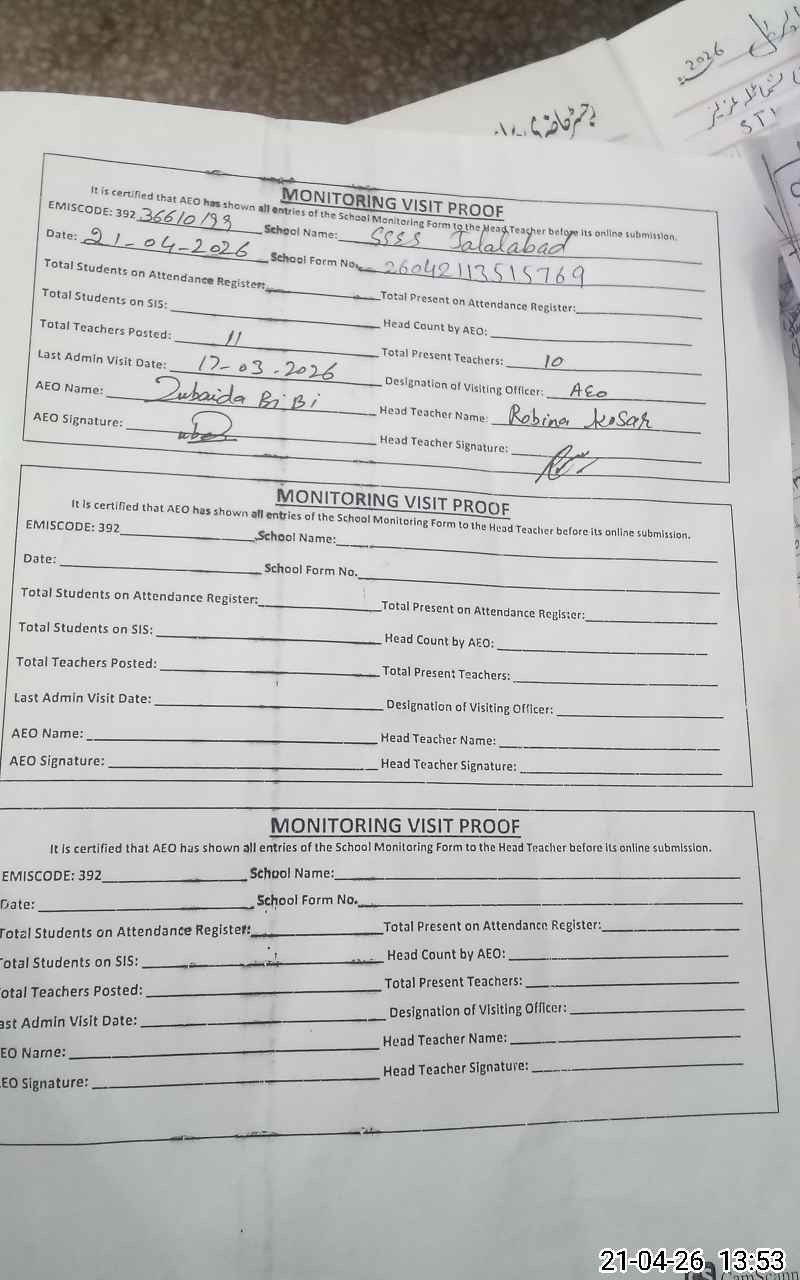 2026
STI
MONITORING VISIT PROOF
It is certified that AEO has shown all entries of the School Monitoring Form to the Head Teacher before its online submission.
EMISCODE: 392 36610199 School Name: SSES Jalalabad
Date: 21-04-2026 School Form No. 26042113515769
Total Students on Attendance Register: Total Present on Attendance Register:
Total Students on SIS: Head Count by AEO:
Total Teachers Posted: 11 Total Present Teachers: 10
Last Admin Visit Date: 17-03-2026 Designation of Visiting Officer: AEO
AEO Name: Zubaida BiBi Head Teacher Name: Robina Kosar
AEO Signature: Head Teacher Signature:
MONITORING VISIT PROOF
It is certified that AEO has shown all entries of the School Monitoring Form to the Head Teacher before its online submission.
EMISCODE: 392 School Name:
Date: School Form No.
Total Students on Attendance Register: Total Present on Attendance Register:
Total Students on SIS: Head Count by AEO:
Total Teachers Posted: Total Present Teachers:
Last Admin Visit Date: Designation of Visiting Officer:
AEO Name: Head Teacher Name:
AEO Signature: Head Teacher Signature:
MONITORING VISIT PROOF
It is certified that AEO has shown all entries of the School Monitoring Form to the Head Teacher before its online submission.
EMISCODE: 392 School Name:
Date: School Form No.
Total Students on Attendance Register: Total Present on Attendance Register:
Total Students on SIS: Head Count by AEO:
otal Teachers Posted: Total Present Teachers:
ast Admin Visit Date: Designation of Visiting Officer:
EO Name: Head Teacher Name:
EO Signature: Head Teacher Signature:
21-04-26 13:53
CS CamScann